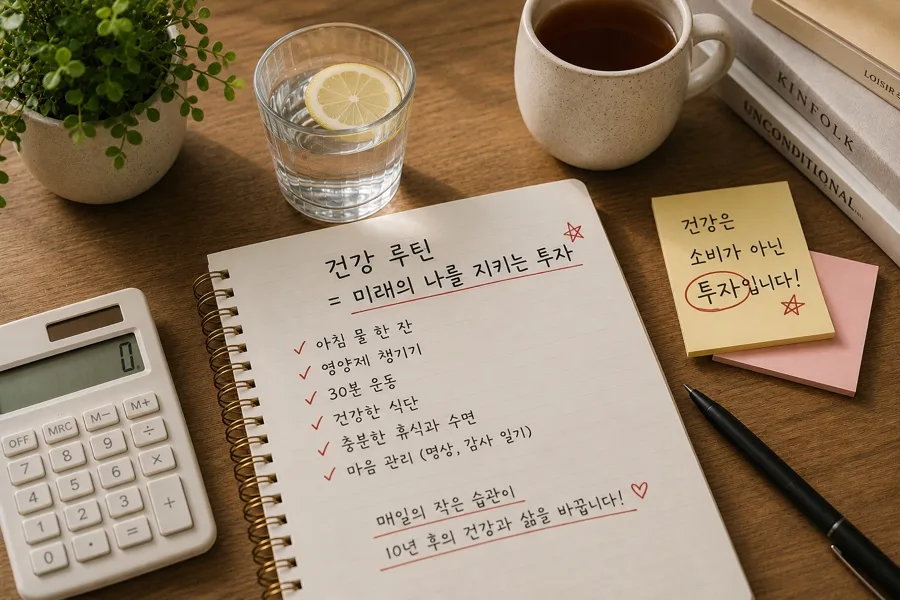 건강 루틴
= 미래의 나를 지키는 투자
아침 물 한 잔
영양제 챙기기
30분 운동
건강한 식단
충분한 휴식과 수면
마음 관리 (명상, 감사 일기)
매일의 작은 습관이
10년 후의 건강과 삶을 바꿉니다!
건강은
소비가 아닌
투자입니다!
LOISIR &
KINFOLK
UNCONDITIONAL
0.
OFF MRC M− M+
7 8 9 ÷
4 5 6 ×
1 2 3 +
0 . =